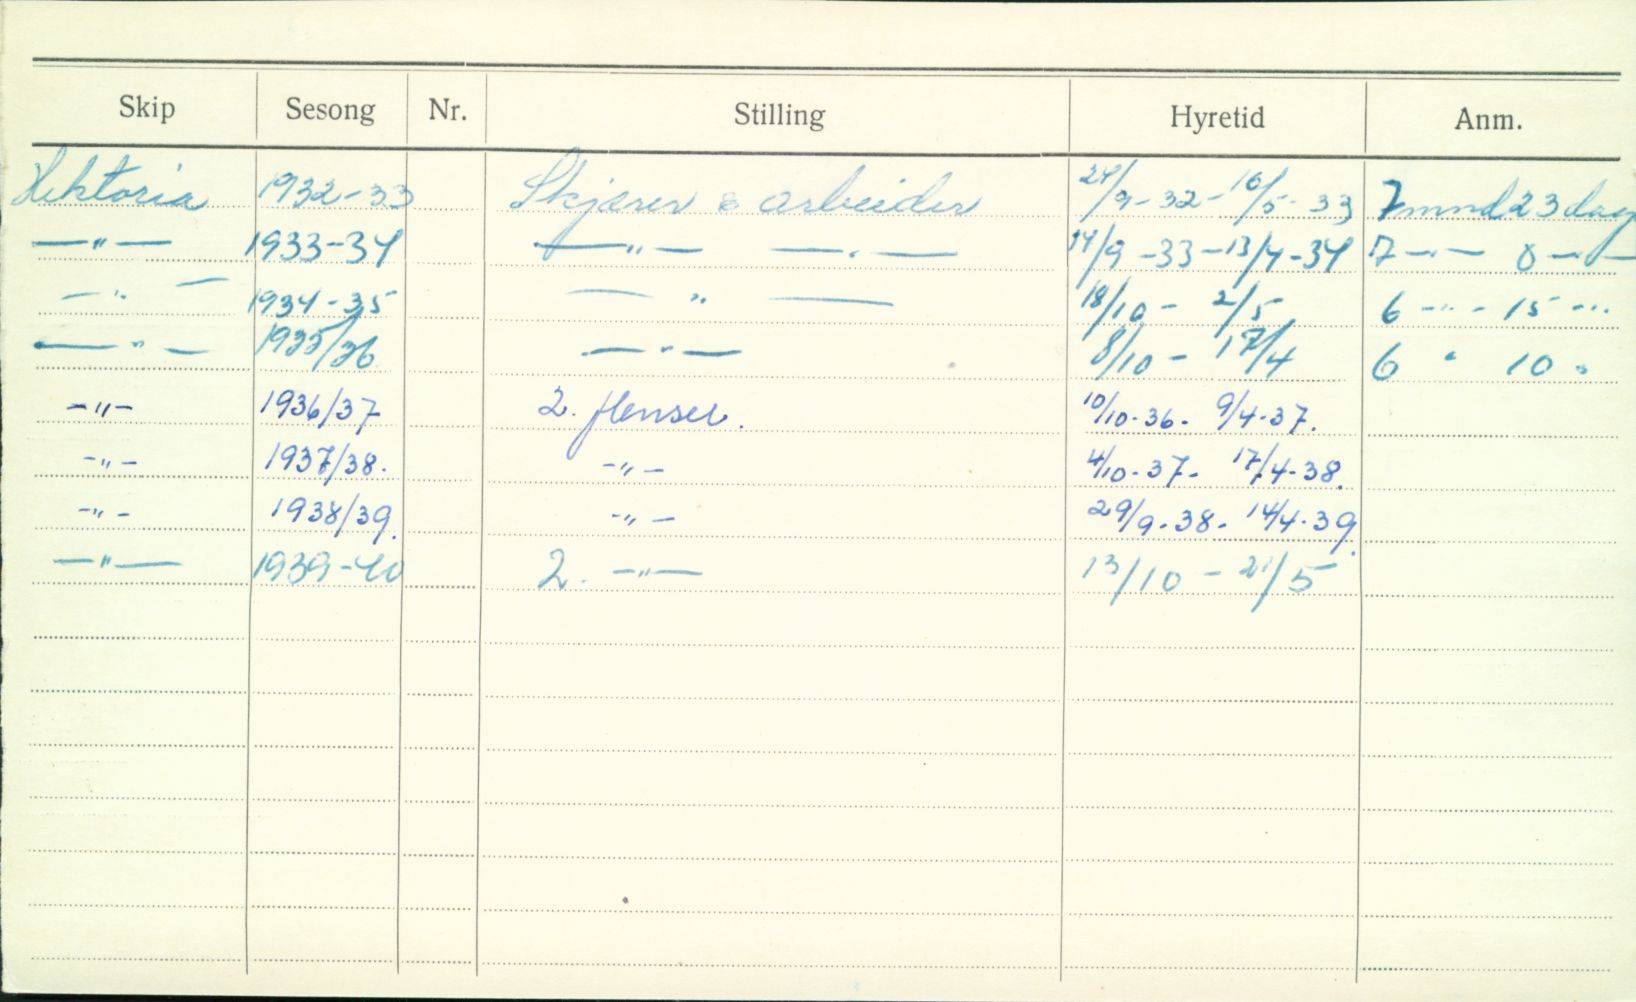 Skip Sesong Nr. Stilling Hyretid Anm.
Hektoria 1932-33 Skjærer & arbeider 24/9-32-16/5-33 7 mnd 23 dag
—"— 1933-34 —"— —"— 14/9-33-13/4-34 7 —"— 0 —"—
—"— 1934-35 —"— 18/10 - 2/5 6 —"— 15 —"—
—"— 1935/36 —"— 8/10 - 17/4 6 " 10 "
-"- 1936/37 2. flenser. 10/10-36- 9/4-37.
-"- 1937/38. -"- 4/10-37- 17/4-38.
-"- 1938/39. -"- 29/9-38- 14/4-39.
—"— 1939-40 2. —"— 13/10 - 21/5